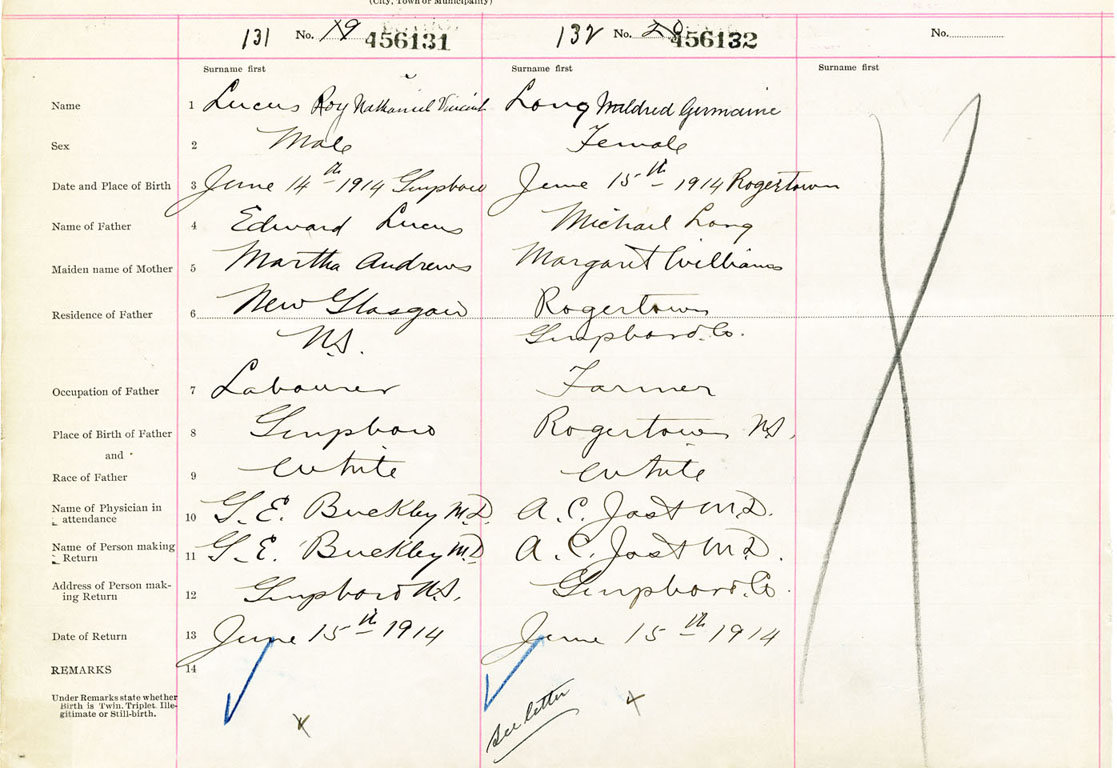 (City, Town or Municipality)
131 No. 19 456131 132 No. 20 456132 No.
Surname first Surname first Surname first
Name 1 Lucus Roy Nathaniel Vincint Long Mildred Germaine
Sex 2 Male Female
Date and Place of Birth 3 June 14th 1914 Guysboro June 15th 1914 Rogertown
Name of Father 4 Edward Lucus Michael Long
Maiden name of Mother 5 Martha Andrews Margaret Williams
Residence of Father 6 New Glasgow Rogertown
N.S. Guysboro. Co.
Occupation of Father 7 Labourer Farmer
Place of Birth of Father 8 Guysboro Rogertown NS.
and
Race of Father 9 White White
Name of Physician in
attendance 10 G. E. Buckley M.D. A. C. Jost M.D.
Name of Person making
Return 11 G. E. Buckley M.D A. C. Jost M.D.
Address of Person mak-
ing Return 12 Guysboro N.S. Guysboro. Co.
Date of Return 13 June 15th 1914 June 15th 1914
REMARKS 14
Under Remarks state whether
Birth is Twin, Triplet, Ille-
gitimate or Still-birth.
See letter